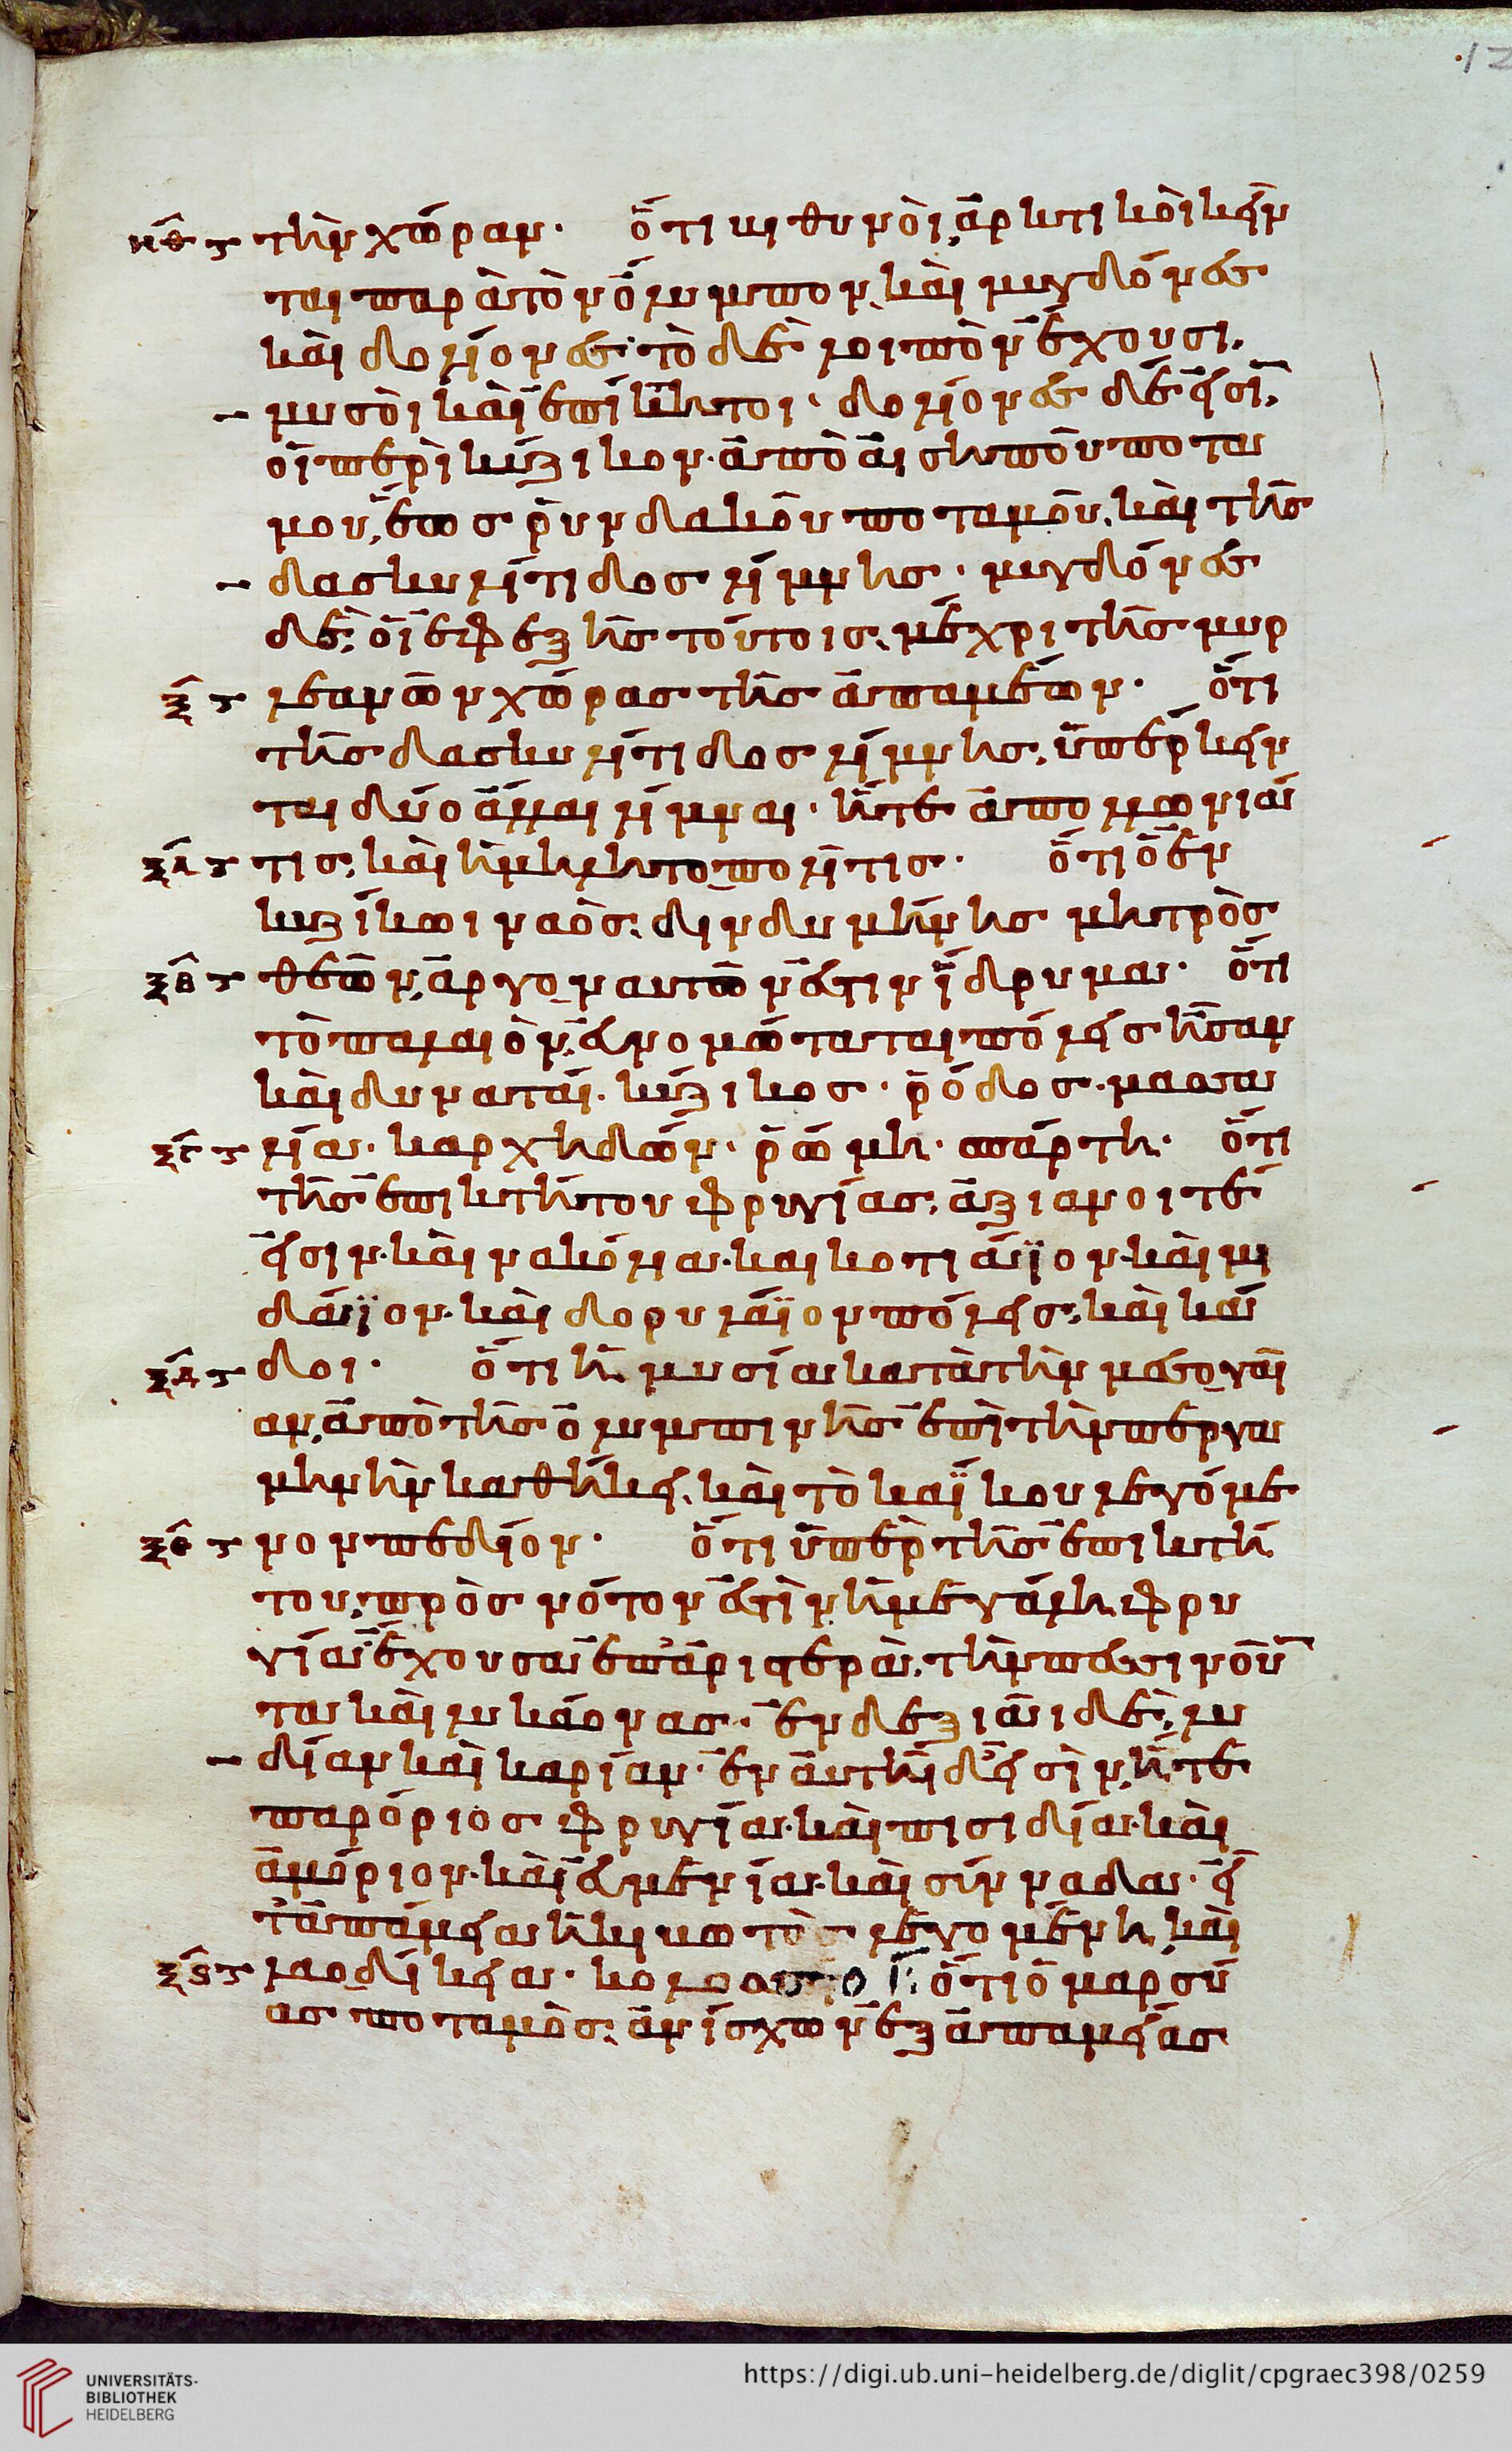 12
νθ τὴν χώραν· ὅτι βιθυνοὶ, ἀρκτικοὶ κεῖν
ται παρὰ τὸν ὄλυμπον, καὶ μυγδόνες
καὶ δολίονες· τὸ δὲ λοιπὸν ἔχουσι,
μυσοὶ καὶ ἐπίκτητοι· δολίονες δέ εἰσι,
οἱ περὶ κύζικον· ἀπὸ αἰσήπου ποτα
μοῦ, ἕως ῥυνδακοῦ ποταμοῦ, καὶ τῆς
δασκυλίτιδος λίμνης· μυγδόνες
δὲ, οἱ ἐφεξῆς τούτοις, μέχρι τῆς μυρ
ξ λεανῶν χώρας τῆς ἀπαμέων· ὅτι
τῆς δασκυλίτιδος λίμνης, ὑπέρκειν
ται δύο ἄλλαι λίμναι· ἥτε ἀπολλωνιᾶ
ξα τις, καὶ ἡ μιλητοπολῖτις· ὅτι ὁ ἐν
κυζίκωι ναὸς, δινδυμήνης μητρὸς
ξβ θεῶν, ἀργοναυτῶν ἐστιν ἵδρυμα· ὅτι
τὸ παλαιὸν, εὐνομώταται πόλεις ἦσαν
καὶ δυναταί· κύζικος· ῥόδος· μασσα
ξγ λία· καρχηδών· ῥώμη· σπάρτη· ὅτι
τῆς ἐπικτήτου φρυγίας, ἀζιανοί τέ
εἰσιν· καὶ νακόλια· καὶ κοτιάϊον· καὶ μι
δάϊον· καὶ δορυλάϊον πόλεις, καὶ κά
ξδ δοι· ὅτι ἡ μυσία κατὰ τὴν μεσόγαι
αν, ἀπὸ τῆς ὀλυμπινῆς ἐπὶ τὴν περγα
μηνὴν καθήκει, καὶ τὸ καΐκου λεγόμε
ξε νον πεδίον· ὅτι ὑπὲρ τῆς ἐπικτή
του, πρὸς νότον ἐστὶν ἡ μεγάλη φρυ
γία ἔχουσα ἐπ' ἀριστερὰ, τὴν πεσινοῦν
τα καὶ λυκάονας· ἐν δεξιᾶι δὲ, λυ
δίαν καὶ καρίαν· ἐν αὐτῆι δ' εἰσὶν, ἥ τε
παρόριος φρυγία· καὶ πισιδία· καὶ
ἀμόριον· καὶ εὐμένια· καὶ σύνναδα· εἶ
τ' ἀπάμεια ἡ κιβωτὸς λεγομένη, καὶ
ξς λαοδίκεια· κολοσσοί· ὅτι ὁ μαρσύ
ας ποταμὸς, ἀνίσχων ἐξ ἀπαμείας
UNIVERSITÄTS-
BIBLIOTHEK
HEIDELBERG
https://digi.ub.uni-heidelberg.de/diglit/cpgraec398/0259